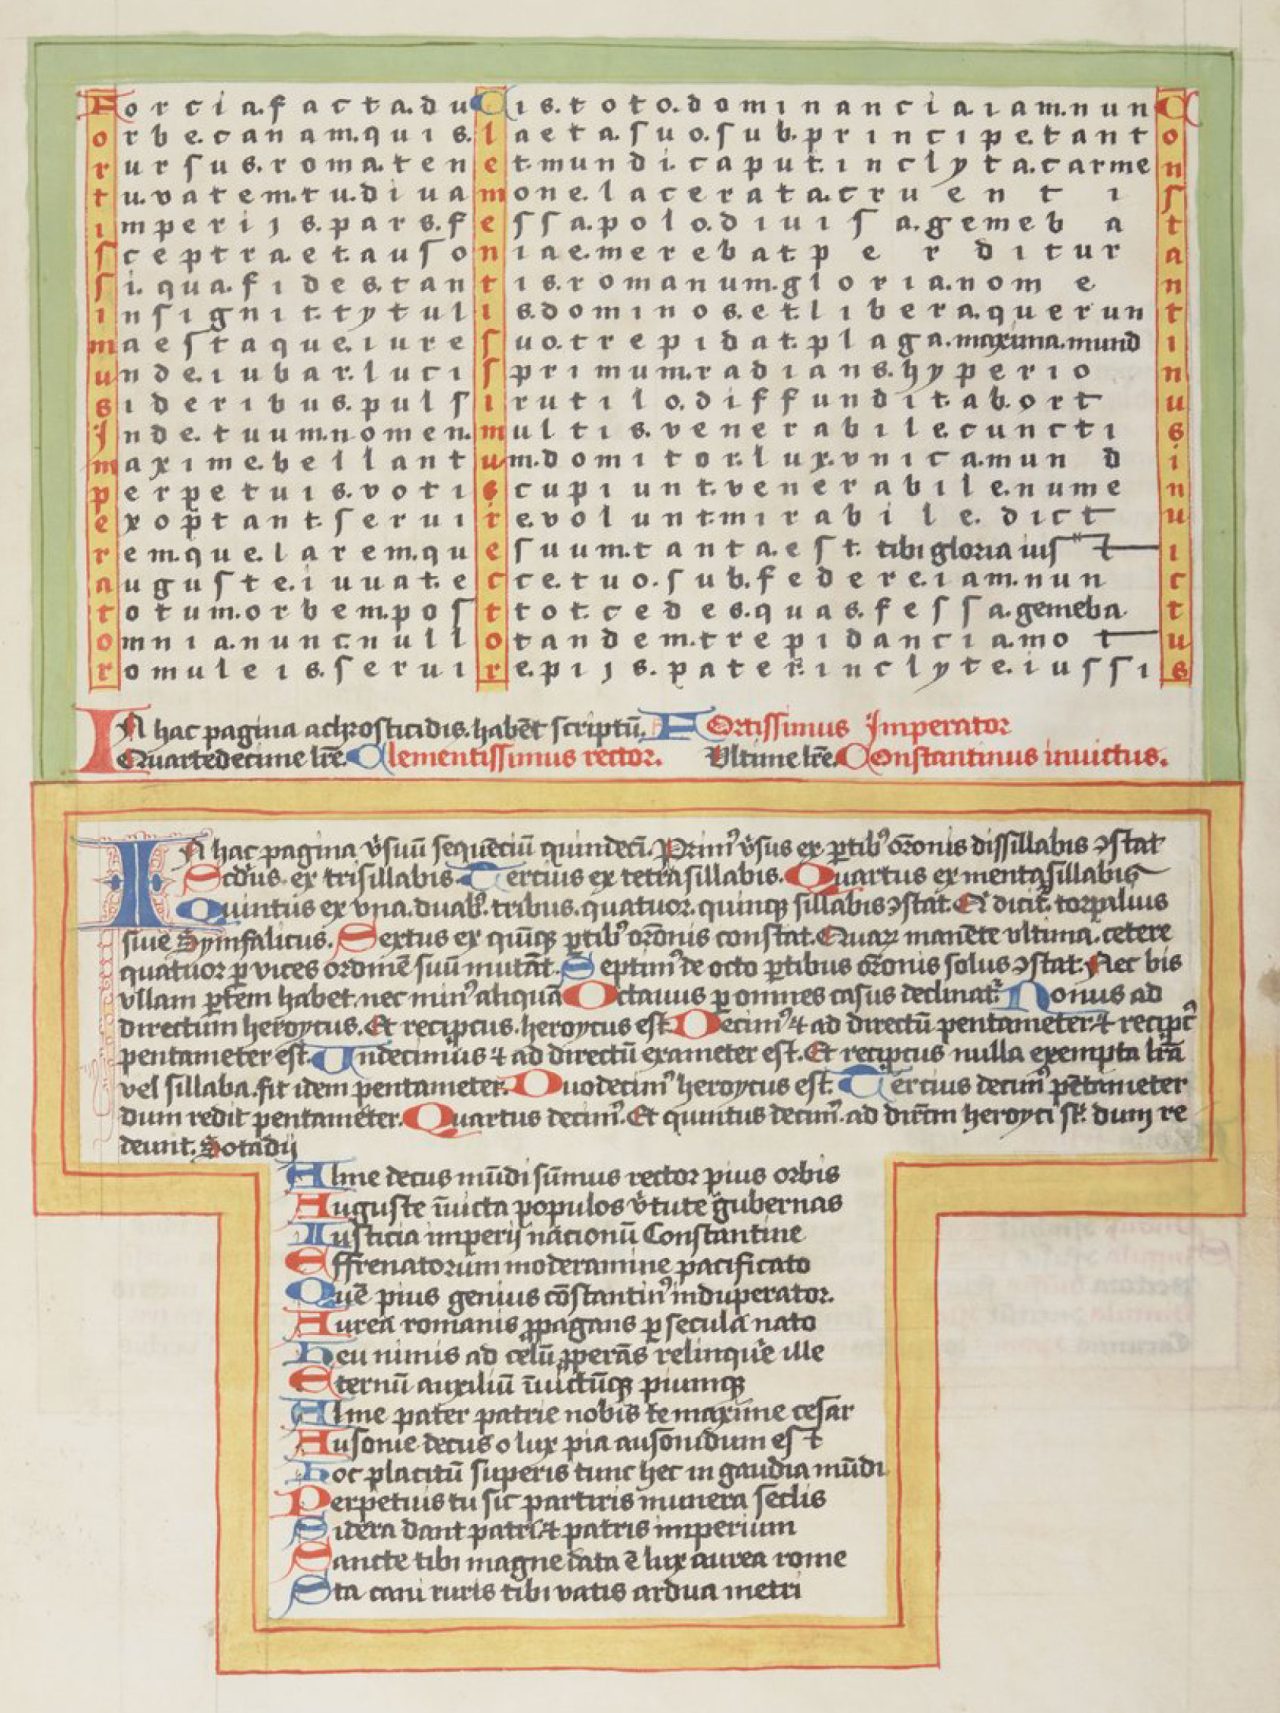 Forcia.facta.duCis.toto.dominancia.iam.nunC
orbe.canam.quis.laeta.ſuo.ſub.principe.tanto
rurſus.roma.tenet.mundi.caput.inclyta.carmen
tu.vatem.tu.diua.mone.lacerata.truentiſ
imperijs.pars.feſſa.polo.diuiſa.gemebat
ſceptra.et.auſoniae.merebat perditura
ſi.qua.fides.tantis.romanum.gloria.nomen
inſignit.tytulis.dominos.et.libera.querunt
maeſtaque.iureſuo.trepidat.plaga.maxima.mundi
unde.iubar.luciſprimum.radians.hyperion
sideribus.pulſirutilo.diffundit.ab.ortu
Inde.tuum.nomen.multis.venerabile.cunctis
maxime.bellantum.domitor.lux.vnica.mundi
perpetuis.votiscupiunt.venerabile.numen
exoptant.ſeruire.volunt.mirabile.dictu
rem.que.larem.queſuum.tanta.eſt.tibi gloria iuſti
auguſte.iuuat.ecce.tuo.ſub.federe.iam.nunc
totum.orbem.poſtot.cedes.quas.feſſa.gemebat
omnia.nunc.nullotandem.trepidancia.motu
romuleis.ſeruire.pijs.pater.inclyte.iuſſis
IN hac pagina achroſticidis.habēt ſcriptū. FOrtiſſimus Imperator
Quartedecime lr̄e. Clementiſſimus rector. Vltime lr̄e. Conſtantinus inuictus.
IN hac pagina v̄ſuū ſequēciū quindecī. Prim᷒ v̄ſus ex ꝑtib᷒ or̄onis diſſillabis ↄſtat
Scd̄us ex triſillabis Tercius ex tetraſillabis. Quartus ex mentaſillabis
Quintus ex vna.duab᷒.tribus.quatuor.quinqꝫ ſillabis ↄſtat. Et dicit᷑ torpalius
ſiue Symfalicus. Sextus ex quīqꝫ ꝑtib᷒ or̄onis conſtat. Quaꝝ manēte vltima.cetere
quatuor ꝑ vices ordinē ſuū mutāt. Septim᷒ de octo ꝑtibus or̄onis ſolus ↄſtat. Nec bis
vllam ꝑtem habet.nec min᷒ aliquā Octauus ꝑ omnes caſus declinat᷑. Nonus ad
directum heroycus. Et recip̄cus.heroycus eſt. Decim᷒ ⁊ ad directū pentameter.⁊ recip̄c᷒
pentameter eſt. Undecimus ⁊ ad directū exameter eſt. Et recip̄cus nulla exempta lr̄a
vel ſillaba.fit idem pentameter. Duodecim᷒ heroycus eſt. Tercius decim᷒ pētameter
dum redit pentameter. Quartus decim᷒. Et quintus decim᷒.ad dirc̄m heroyci ſt̄.dum re
deunt. Sotadij
Alme decus mūdi ſūmus rector pius orbis
Auguſte īuicta populos v̄tute gubernas
Iuſticia imperij nacionū Conſtantine
Effrenatorum moderamine pacificato
Quē pius genius cōſtantin᷒ induperator.
Aurea romanis ꝓpagans ꝑ ſecula nato
Heu nimis ad celū ꝓperās relinquē ille
Eternū auxiliū īuictūqꝫ piumqꝫ
Alme pater patrie nobis te maxime ceſar
Auſonie decus o lux pia auſonidum eſt
Hoc placitū ſuperis tunc hec in gaudia mūdi
Perpetuis tu ſic partiris munera ſeclis
Sidera dant patri.⁊ patris imperium
Sancte tibi magne data ē lux aurea rome
Sta cani ruris tibi vatis ardua metri